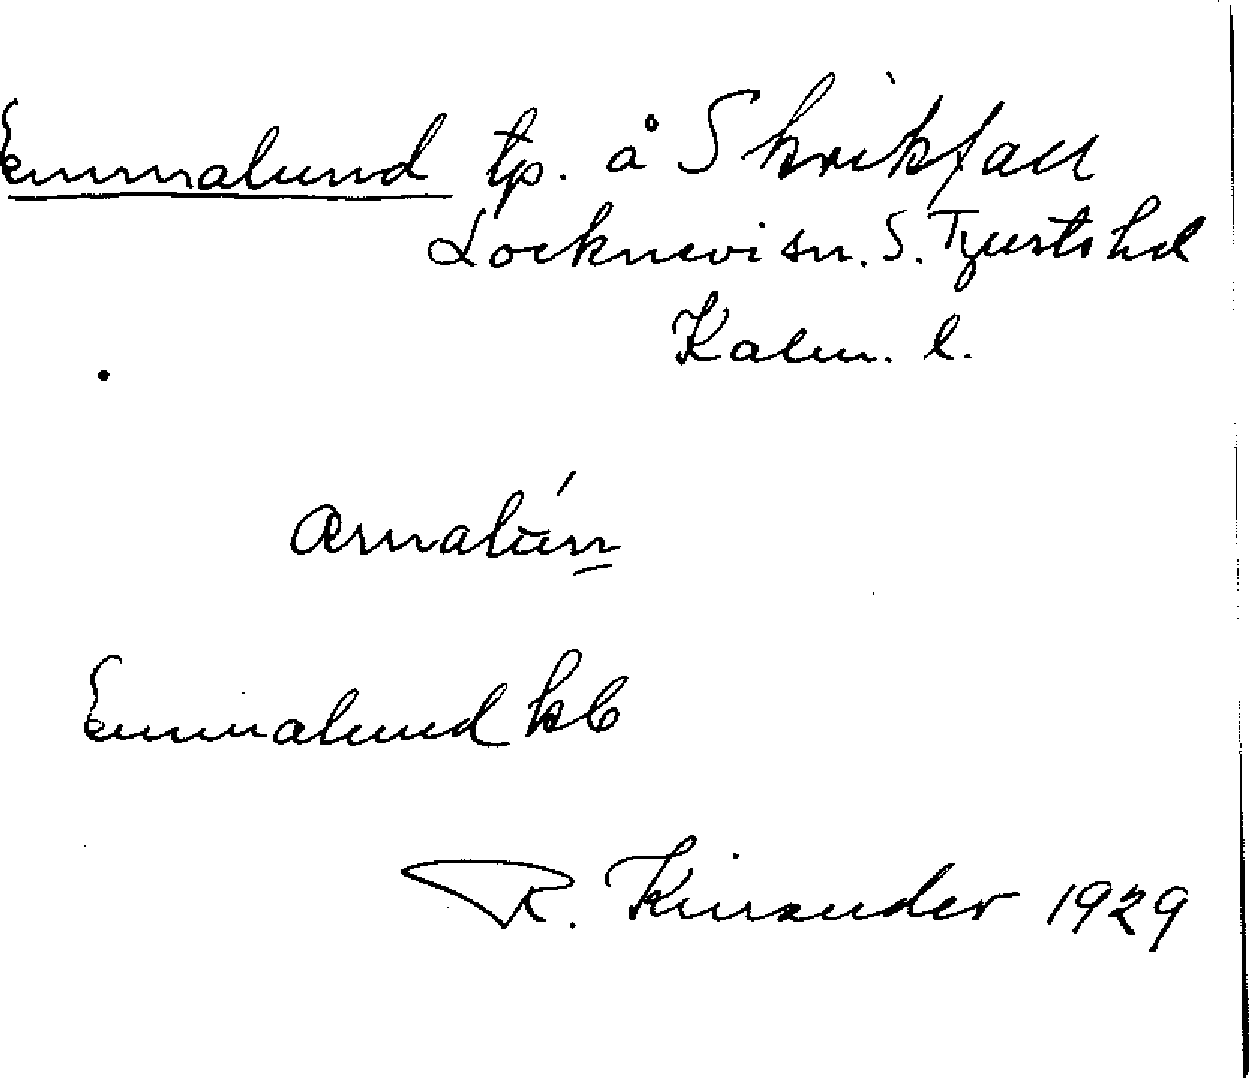 Emmalund tp. å Skrikfall
Locknevi sn. S. Tjusts hd
Kalm. l.
æmalún
Emmalund kb
R. Kinander 1929